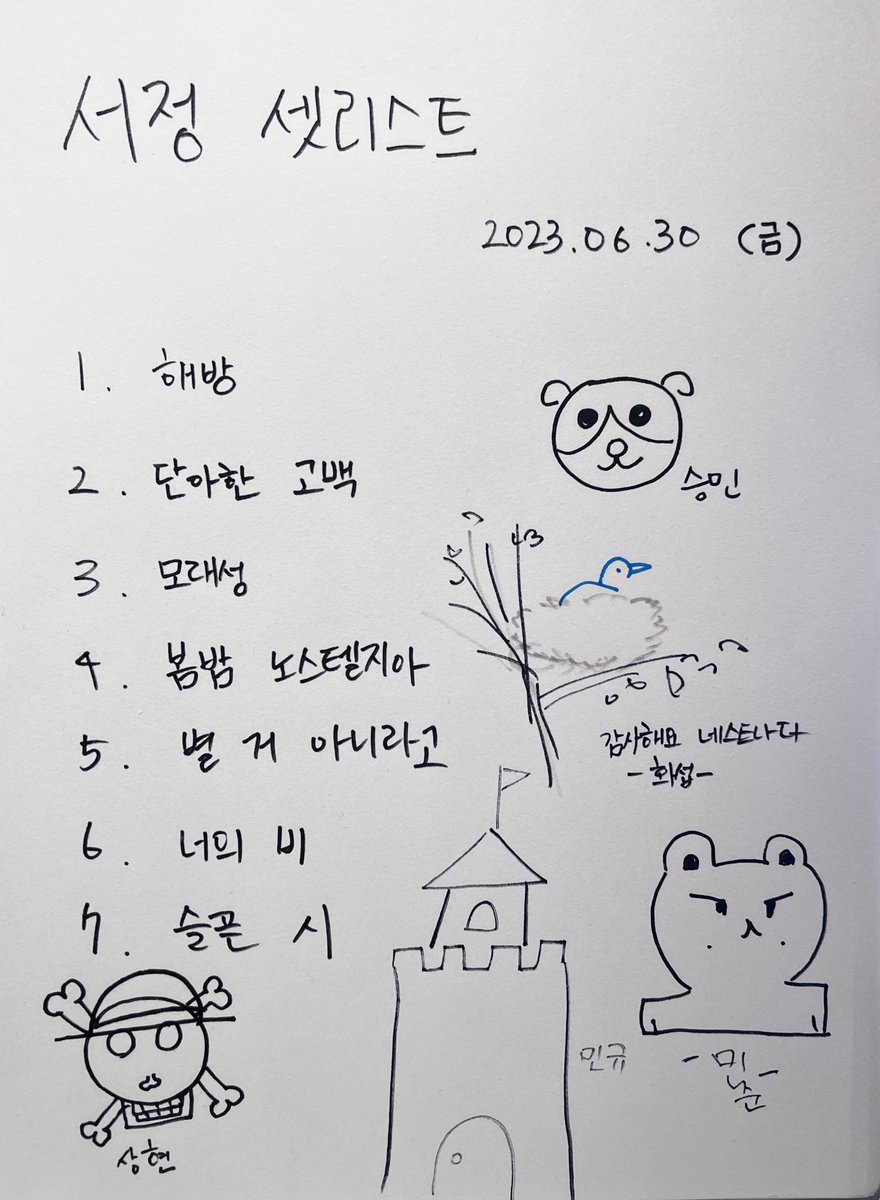 서정 셋리스트
2023.06.30 (금)
1. 해방
2. 단아한 고백
승민
3. 모래성
4. 봄밤 노스텔지아
5. 별 거 아니라고
감사해요 네스트나다
-화섭-
6. 너의 비
7. 슬픈 시
민규
-민준-
상현